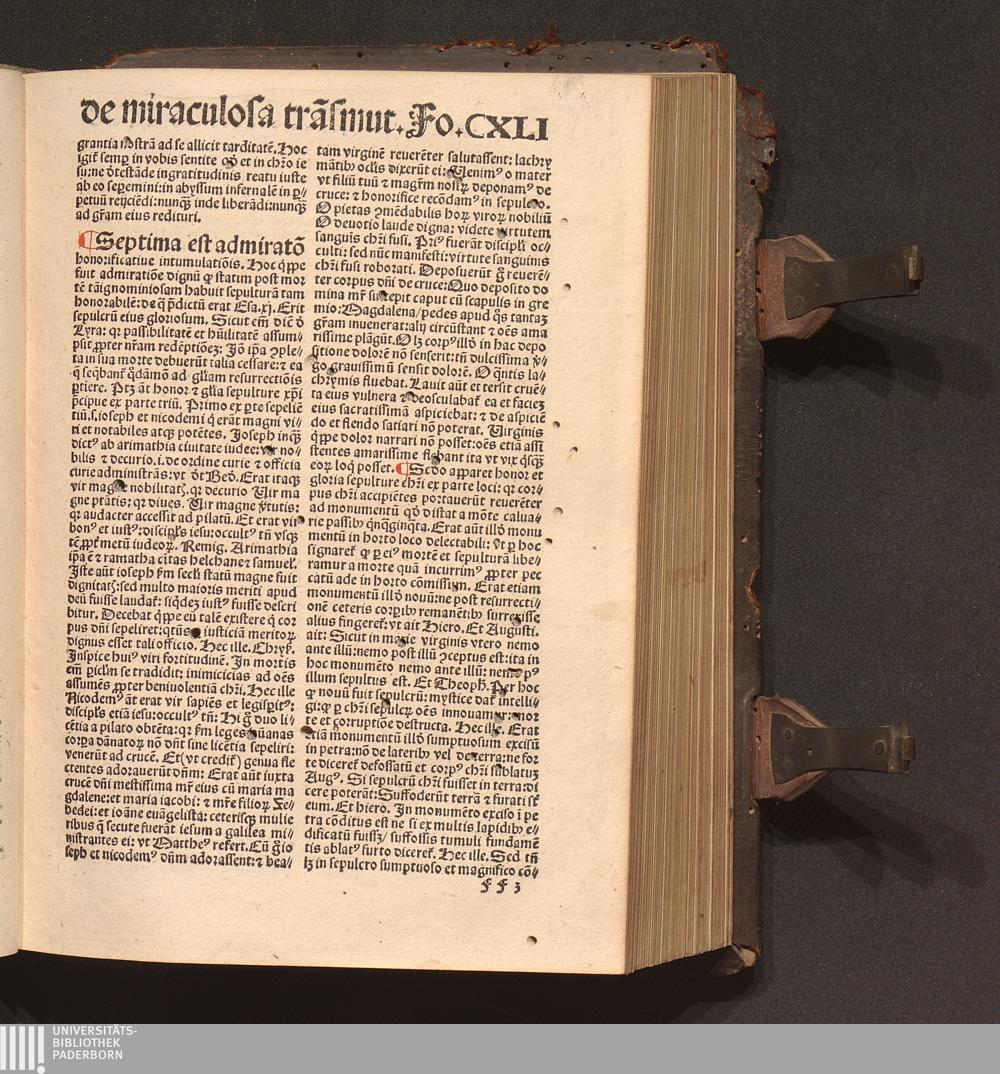 de miraculosa trãsmut. Fo. CXLI
grantia nostrã ad se allicit tarditatẽ. Hoc
igit᷑ semꝑ in vobis sentite ꝙ et in chr̃o ie
su: ne õtestãde ingratitudinis reatu iuste
ab eo seꝑemini: in abyssum infernalẽ in ꝑ⸗
petuũ reijciẽdi: nunqꝫ inde liberãdi: nunqꝫ
ad gr̃am eius redituri.
¶ Septima est admiratõ
honorificatiue intumulatiõis. Hoc q̃ppe
fuit admiratiõe dignũ ꝙ statim post mor
tẽ tã ignominiosam habuit sepulturã tam
honorabilẽ: de q̃ p̃dictũ erat Esa. xj. Erit
sepulcrũ eius gloriosum. Sicut em̃ dic̃ ð
Lyra: qꝛ passibilitatẽ et hũilitatẽ assum⸗
psit ꝓpter nr̃am redẽptiõeꝫ: Jõ ip̃a ꝯple⸗
ta in sua morte debuerũt talia cessare: ⁊ ea
q̃ seq̃bant᷑ q̃dãmõ ad gl̃iam resurrectiõis
ꝑtiere. Ptꝫ aũt honor ⁊ gl̃ia sepulture xp̃i
p̃cipue ex parte triũ. Primo ex ꝑte sepeliẽ
tiũ. s. ioseph et nicodemi q̃ erãt magni vi⸗
ri et notabiles atqꝫ potẽtes. Joseph inqꝫ
dictꝰ ab arimathia ciuitate iudee: vir no⸗
bilis ⁊ decurio. i. de ordine curie ⁊ officia
curie administrãs: vt õt Bed̃. Erat itaqꝫ
vir magne nobilitatꝭ. qꝛ decurio Vir ma
gne ptãtis: qꝛ diues. Vir magne ꝟtutis:
qꝛ audacter accessit ad pilatũ. Et erat vir
bonꝰ et iustꝰ: discipls̃ iesu: occultꝰ tñ vsqꝫ
tc̃ ꝓpt᷑ metũ iudeoꝝ. Remig. Arimathia
ip̃a ẽ ⁊ ramatha ciuitas helchane ⁊ samuel᷑.
Jste aũt ioseph ẜm secl̃i statũ magne fuit
dignitatꝭ: sed multo maioris meriti apud
deũ fuisse laudat᷑: siq̃deꝫ iustꝰ fuisse descri
bitur. Decebat q̃ppe eũ talẽ existere q̃ cor
pus dñi sepeliret: qtũs iusticiã meritoꝝ
dignus esset tali officio. Hec ille. Chryß.
Inspice huiꝰ viri fortitudinẽ. In mortis
em̃ ꝑicl̃m se tradidit: inimicicias ad oẽs
assumẽs ꝓpter beniuolentiã chr̃i. Hec ille
Nicodemꝰ aũt erat vir sapiẽs et legisꝑitꝰ:
discipls̃ etiã iesu: occultꝰ tñ: Hi g̃ duo li⸗
cẽtia a pilato obtẽta: qꝛ ẜm leges hũanas
corꝑa dãnatoꝝ nõ dñt sine licẽtia sepeliri:
venerũt ad crucẽ. Et (vt credit᷑) genua fle
ctentes adorauerũt dñm: Erat aũt iuxta
crucẽ dñi mestissima mr̃ eius cũ maria ma
gdalene: et maria iacobi: ⁊ mr̃e filioꝝ Ze⸗
bedei: et ioãne euãgelista: ceterisqꝫ mulie
ribus q̃ secute fuerãt iesum a galilea mi⸗
nistrantes ei: vt Mattheꝰ refert. Cũ g̃ io
seph et nicodemꝰ dñm adorassent: ⁊ bea⸗
tam virginẽ reuerẽter salutassent: lachry
mãtibꝰ oclis̃ dixerũt ei: Uenimꝰ o mater
vt filiũ tuũ ⁊ magr̃m nostꝝ deponamꝰ de
cruce: ⁊ honorifice recõdamꝰ in sepulcro.
O pietas ꝯmẽdabilis hoꝝ viroꝝ nobiliũ
O deuotio laude digna: videte virtutem
sanguis chr̃i fusi. Priꝰ fuerãt discipl̃i oc⸗
culti: sed nũc manifesti: virtute sanguinis
chr̃i fusi roborati. Deposuerũt g̃ reuerẽ⸗
ter corpus dñi de cruce: Quo deposito do
mina mr̃ suscepit caput cũ scapulis in gre
mio: Magdalena/ pedes apud q̃s tantaꝫ
gr̃am inuenerat: alij circũstant ⁊ oẽs ama
rissime plãgũt. O lꝫ corpꝰ illð in hac depo
sitione dolorẽ nõ senserit: tñ dulcissima ꝟ⸗
go grauissimũ sensit dolorẽ. O q̃ntis la⸗
chrymis fluebat. Lauit aũt et tersit cruẽ⸗
ta eius vulnera ⁊ deosculabat᷑ ea et facieꝫ
eius sacratissimã aspiciebat: ⁊ de aspiciẽ
do et flendo satiari nõ poterat. Uirginis
q̃ppe dolor narrari nõ posset: oẽs etiã assi
stentes amarissime flebant ita vt vix q̃sqꝫ
eoꝝ loq̃ posset. ¶ Scðo apparet honor et
gloria sepulture chr̃i ex parte loci: qꝛ cor⸗
pus chr̃i accipiẽtes portauerũt reuerẽter
ad monumentũ qð distat a mõte calua⸗
rie passibꝰ q̃nq̃ginq̃ta. Erat aũt illð monu
mentũ in horto loco delectabili: vt ꝑ hoc
signaret᷑ ꝙ ꝑ eiꝰ mortẽ et sepulturã libe⸗
ramur a morte quã incurrimꝰ ꝓpter pec
catũ ade in horto cõmissum. Erat etiam
monumentũ illð nouũ: ne post resurrecti⸗
onẽ ceteris corꝑibꝰ remanẽtibꝰ surrexisse
alius fingeret᷑: vt ait Hiero. Et Augusti.
ait: Sicut in marie virginis vtero nemo
ante illũ: nemo post illũ ꝯceptus est: ita in
hoc monumẽto nemo ante illũ: nemo pꝰ
illum sepultus est. Et Theoph̃. Per hoc
ꝙ nouũ fuit sepulcrũ: mystice dat᷑ intelli⸗
gi: ꝙ ꝑ chr̃i sepulcꝝ oẽs innouamur: mor
te et corruptiõe destructa. Hec ille. Erat
etiã monumentũ illð sumptuosum excisũ
in petra: nõ de lateribꝰ vel de terra: ne for
te diceret᷑ defossatũ et corpꝰ chr̃i sublatuꝫ
Augꝰ. Si sepulcrũ chr̃i fuisset in terra: di
cere poterãt: Suffoderũt terrã ⁊ furati st̃
eum. Et hiero. In monumẽto exciso ĩ pe
tra cõditus est ne si ex multis lapidibꝰ e⸗
dificatũ fuissꝫ/ suffossis tumuli fundamẽ
tis ablatꝰ furto diceret᷑. Hec ille. Sed tñ
lꝫ in sepulcro sumptuoso et magnifico cõ⸗
f f 3
UNIVERSITÄTS-
BIBLIOTHEK
PADERBORN